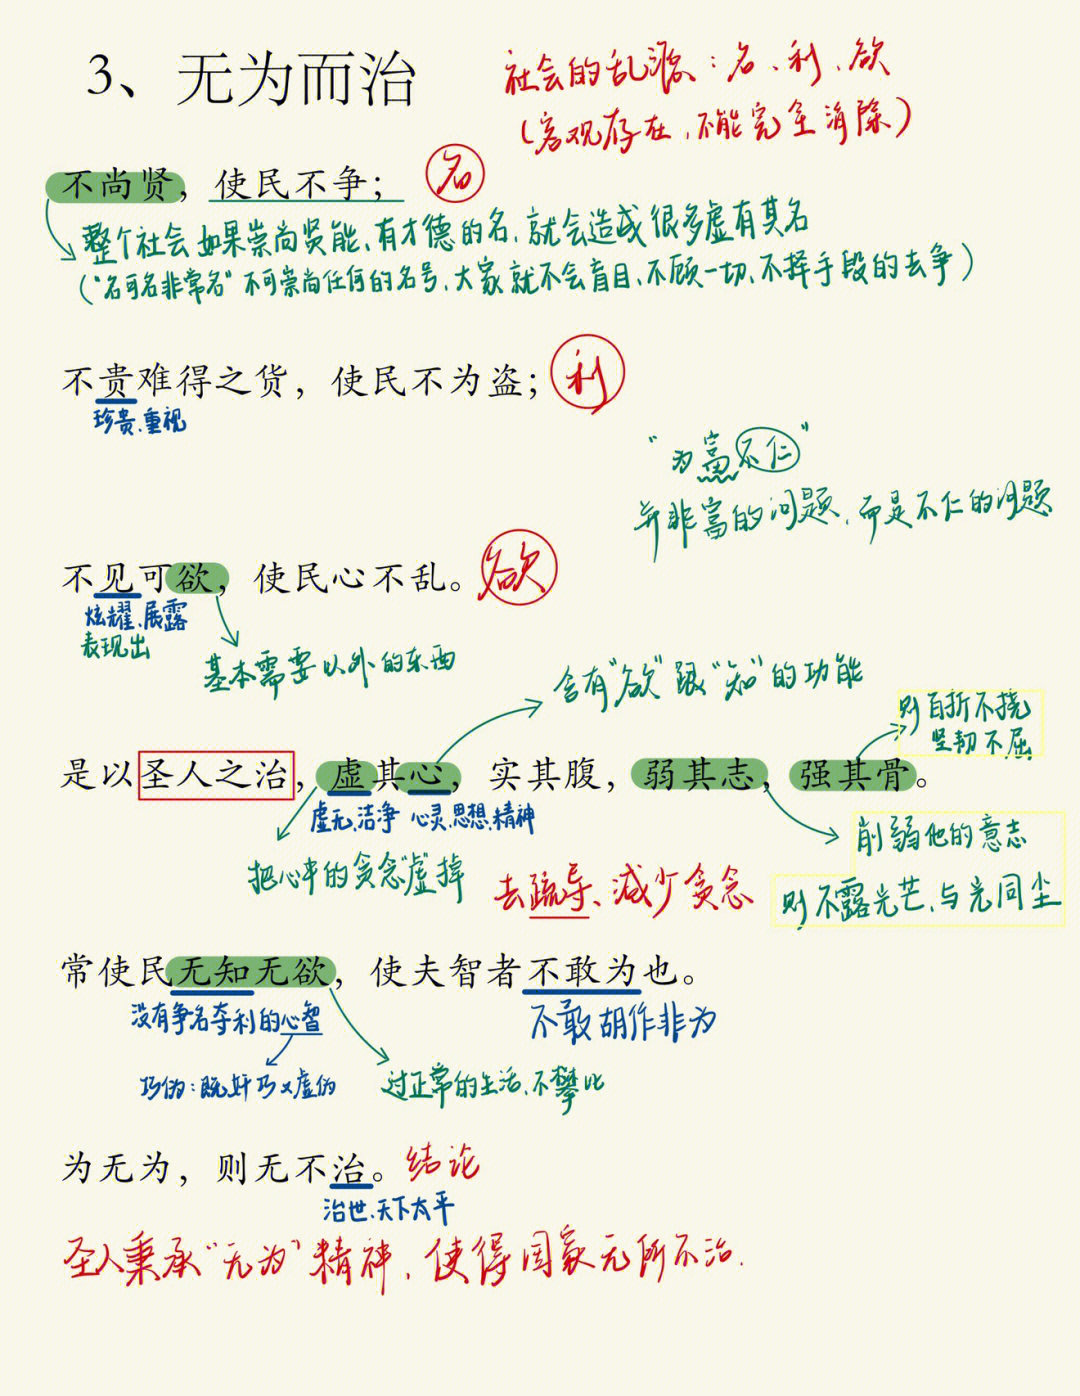 3、无为而治
社会的乱源：名、利、欲
（客观存在，不能完全消除）
不尚贤，使民不争；
名
整个社会如果崇尚贤能、有才德的名，就会造成很多虚有其名
（“名可名非常名”不可崇尚任何的名号，大家就不会盲目、不顾一切、不择手段的去争）
不贵难得之货，使民不为盗；
利
珍贵、重视
“为富不仁”
并非富的问题，而是不仁的问题
不见可欲，使民心不乱。
欲
炫耀、展露
表现出
基本需要以外的东西
含有“欲”跟“知”的功能
则百折不挠
坚韧不屈
是以圣人之治，虚其心，实其腹，弱其志，强其骨。
虚无、洁净 心灵、思想、精神
削弱他的意志
把心中的贪念“虚”掉
去疏导、减少贪念
则不露光芒、与光同尘
常使民无知无欲，使夫智者不敢为也。
没有争名夺利的心智
不敢胡作非为
巧伪：既奸巧又虚伪
过正常的生活、不攀比
为无为，则无不治。
结论
治世、天下太平
圣人秉承“无为”精神，使得国家无所不治.